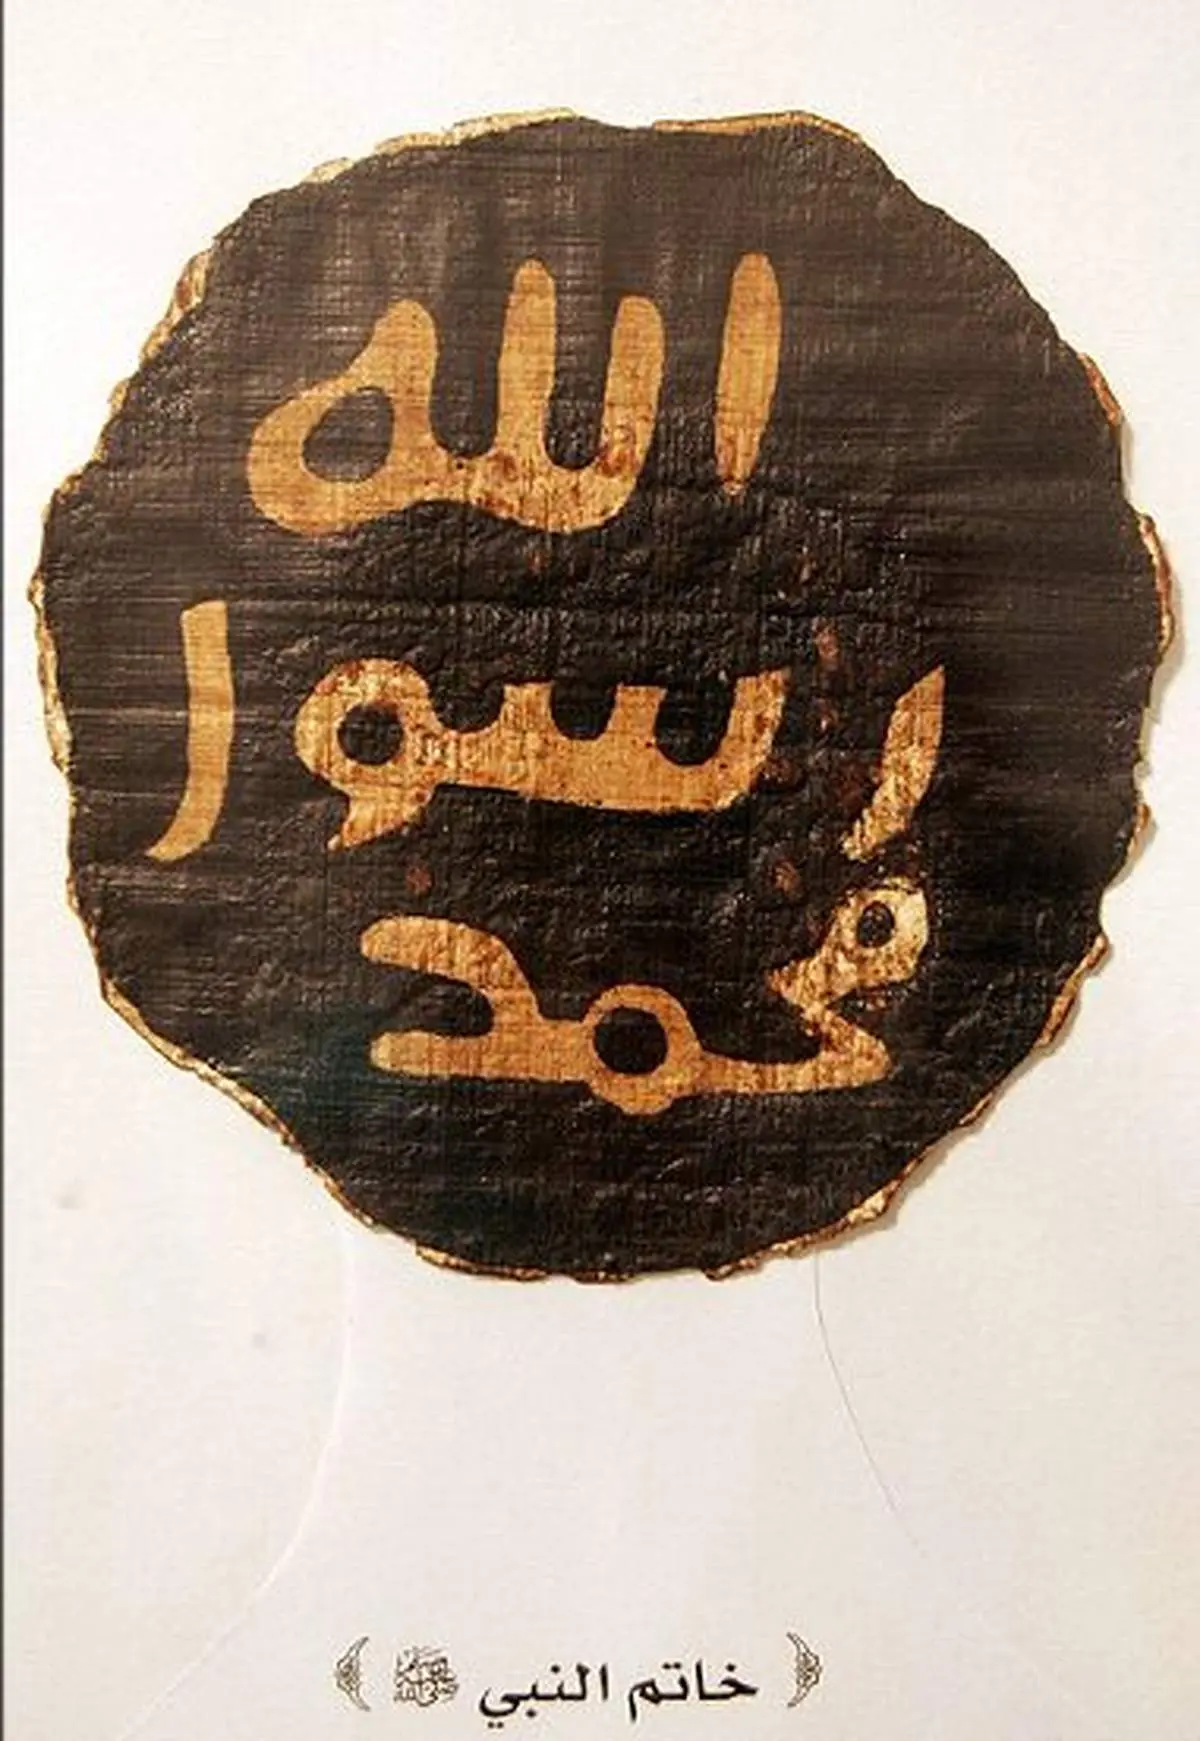 الله
رسول
محمد
﴿ خاتم النبي ﷺ ﴾